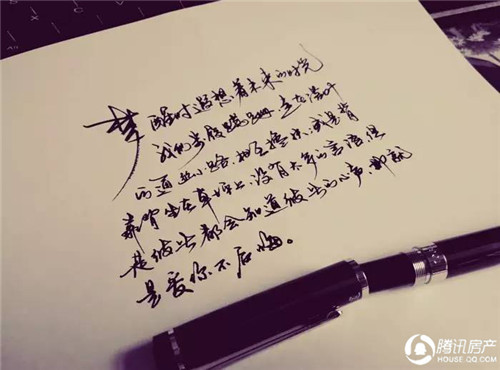 梦醒时遐想着未来的时光
我们步履蹒跚,走在落叶
的道路小路,相互搀扶,或是背
靠背坐在草坪上,没有太多的言语,但
是彼此都会知道彼此的心声,那就
是爱你不后悔。
腾讯房产
HOUSE.QQ.COM